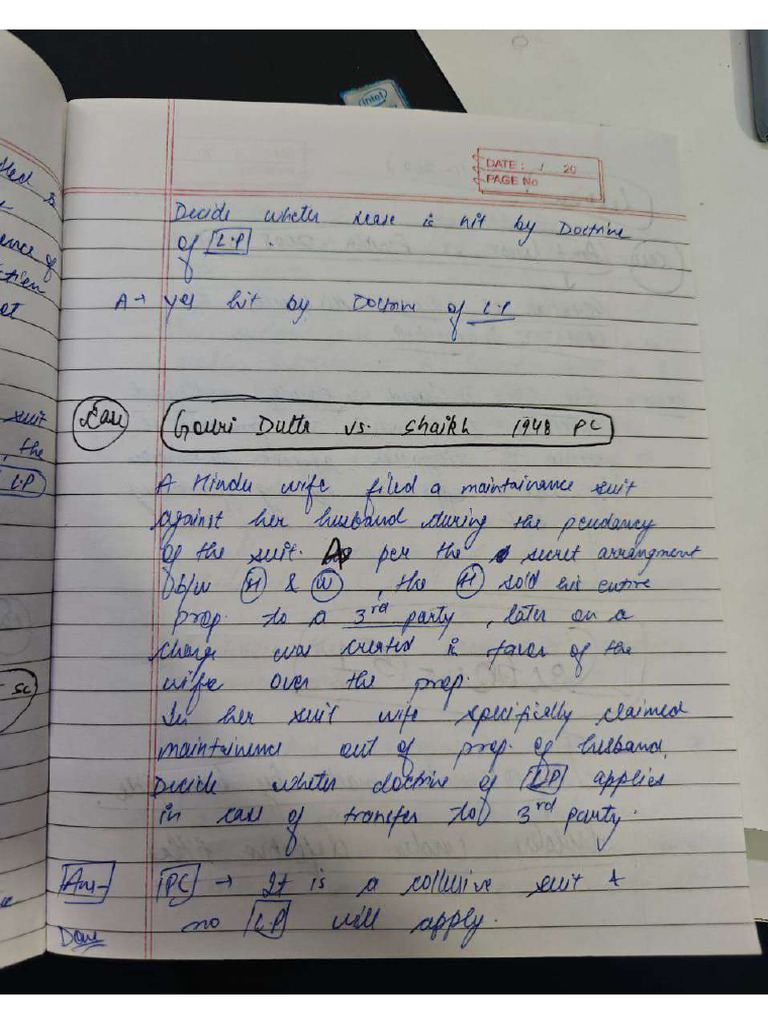 intel
DATE: / 20
PAGE No
Decide wheter case is hit by Doctrine
of L.P.
A → yes hit by Doctrine of L.P
Case Gouri Dutta vs. Shaikh 1948 PC
A Hindu wife filed a maintainance suit
against her husband during the pendancy
of the suit. As per the secret arrangment
b/w H & W, the H sold his entire
prop. to a 3rd party, later on a
charge was created in favor of the
wife over the prop.
In her suit wife specifically claimed
maintainence out of prop. of husband.
Decide wheter doctrine of LP applies
in case of transfer to 3rd party.
Ans- PC → It is a collusive suit &
no L.P will apply.
suit
, the
L.P
SC